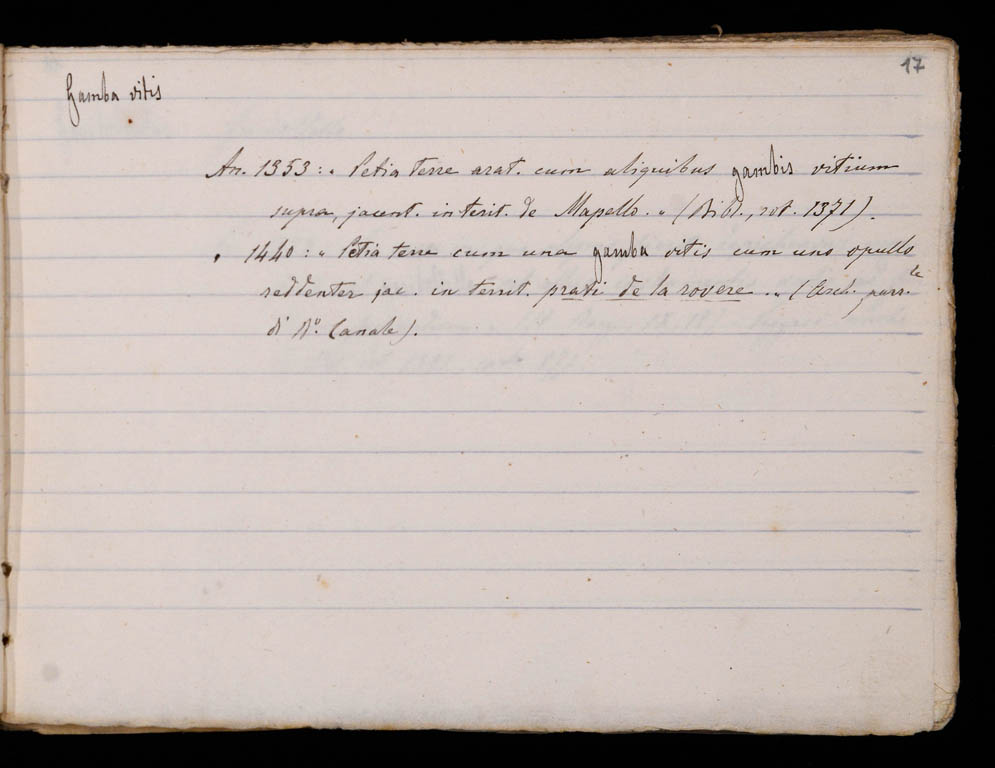 17
Gamba vitis
An. 1353: „ Petia terre arat. cum aliquibus gambis vitium
supra, jacent. in terit. de Mapello. „ (Bibl., rot. 1371).
„ 1440: „ Petia terre cum una gamba vitis cum uno opullo
reddenter jac. in territ. prati de la rovere. „ (Arch. parr.le
di B.o Canale).